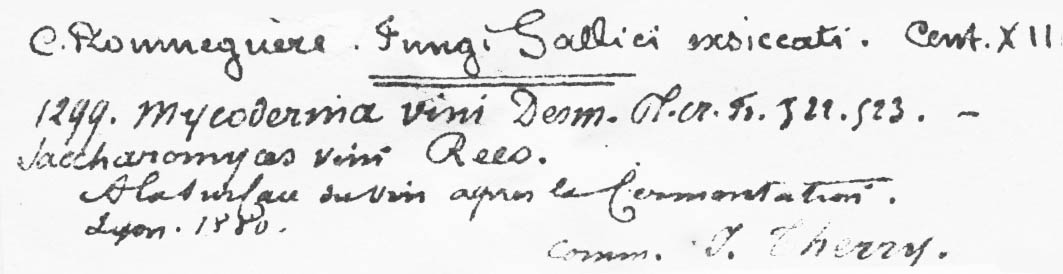 C. Roumeguère. Fungi Gallici exsiccati. Cent. XIII
1299. Mycoderma vini Desm. Pl. cr. Fr. 522. 523. –
Saccharomyces vini Rees.
A la surface du vin après la fermentation.
Lyon. 1880.
comm. J. Therry.